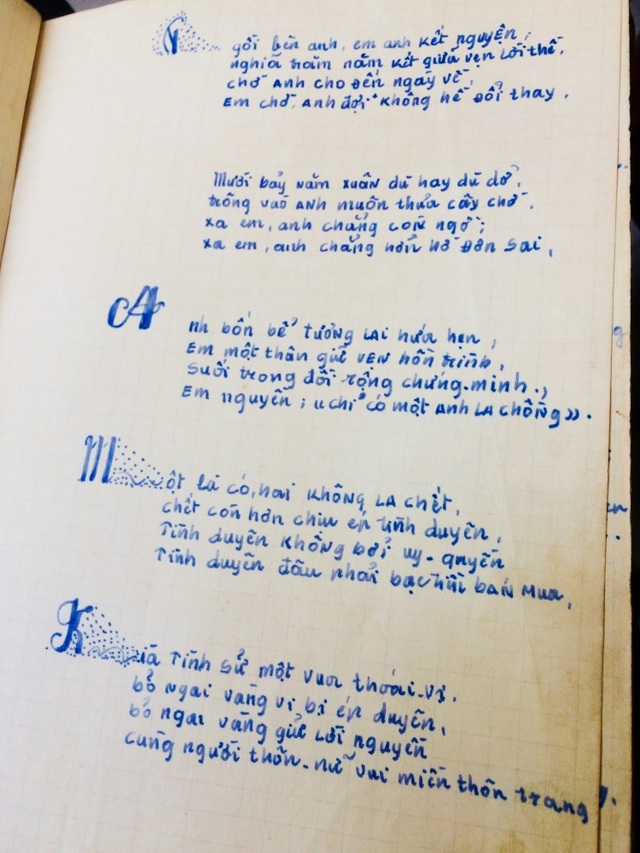 Ngồi bên anh, em anh kết nguyện,
nghĩa trăm năm kết giữa vẹn lời thề.
chờ Anh cho đến ngày về,
Em chờ, Anh đợi không hề đổi thay.
Mười bảy năm xuân dù hay dù dở,
trồng vào Anh muôn thuở cây chờ.
xa em, anh chẳng còn ngờ;
xa em, anh chẳng hờ đơn sai,
Anh bốn bể tương lai hứa hẹn,
Em một thân giữ vẹn hồn trinh,
Suối trong đời rộng chứng-minh.,
Em nguyền; "chỉ có một Anh là chồng".
Một là có, hai không là chết,
chết còn hơn chịu ép tình duyên,
Tình duyên không bởi uy-quyền
Tình duyên đâu phải bạc bán mua,
Kìa Tình sử một vua thoái-vị.
bỏ ngai vàng vì bị ép duyên,
bỏ ngai vàng giữ lời nguyền
cùng người thôn-nữ vui miền thôn trang.